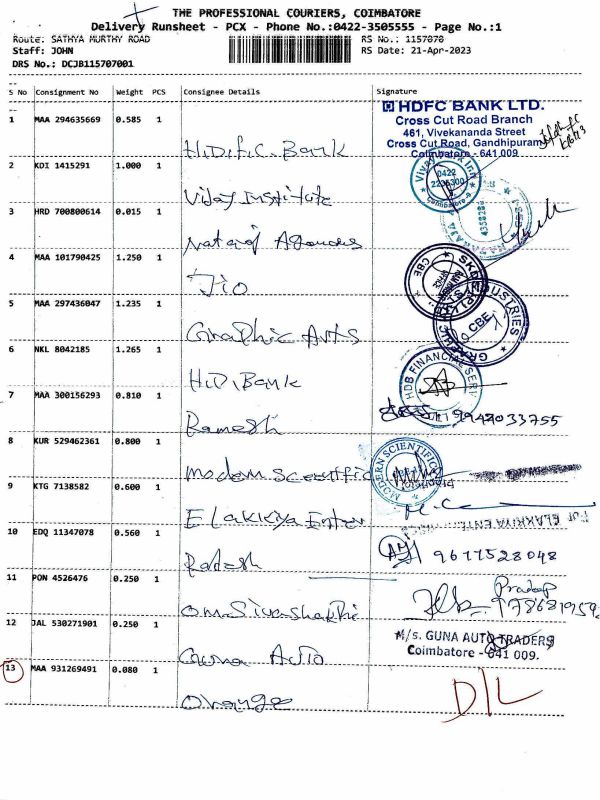 THE PROFESSIONAL COURIERS, COIMBATORE
Delivery Runsheet - PCX - Phone No.:0422-3505555 - Page No.:1
Route: SATHYA MURTHY ROAD RS No.: 1157070
Staff: JOHN RS Date: 21-Apr-2023
DRS No.: DCJB115707001
S No Consignment No Weight PCS Consignee Details Signature
1 MAA 294635669 0.585 1
H.D.F.C. Bank
HDFC BANK LTD.
Cross Cut Road Branch
461, Vivekananda Street
Cross Cut Road, Gandhipuram
Coimbatore - 641 009
2 KDI 1415291 1.000 1
Vijay Institute
0422
Coimbatore
3 HRD 700800614 0.015 1
Agencies
4358286
4 MAA 101790425 1.250 1
Jio
CBE
5 MAA 297436047 1.235 1
Graphic Arts
CBE
6 NKL 8042185 1.265 1
H.D.Bank
HDB FINANCIAL SERV
7 MAA 300156293 0.810 1
Ramesh
9949033755
8 KUR 529462361 0.800 1
Modern Scientific
MODERN SCIENTIFIC
9 KTG 7138582 0.600 1
Elakkiya Enter
For ELAKKIYA ENTE
10 EDQ 11347078 0.560 1
9677528048
11 PON 4526476 0.250 1
Om Siva Shakthi
Pradap
12 JAL 530271901 0.250 1
Guna Auto
M/s. GUNA AUTO TRADERS
Coimbatore - 641 009.
13 MAA 931269491 0.080 1
Orange
D/L